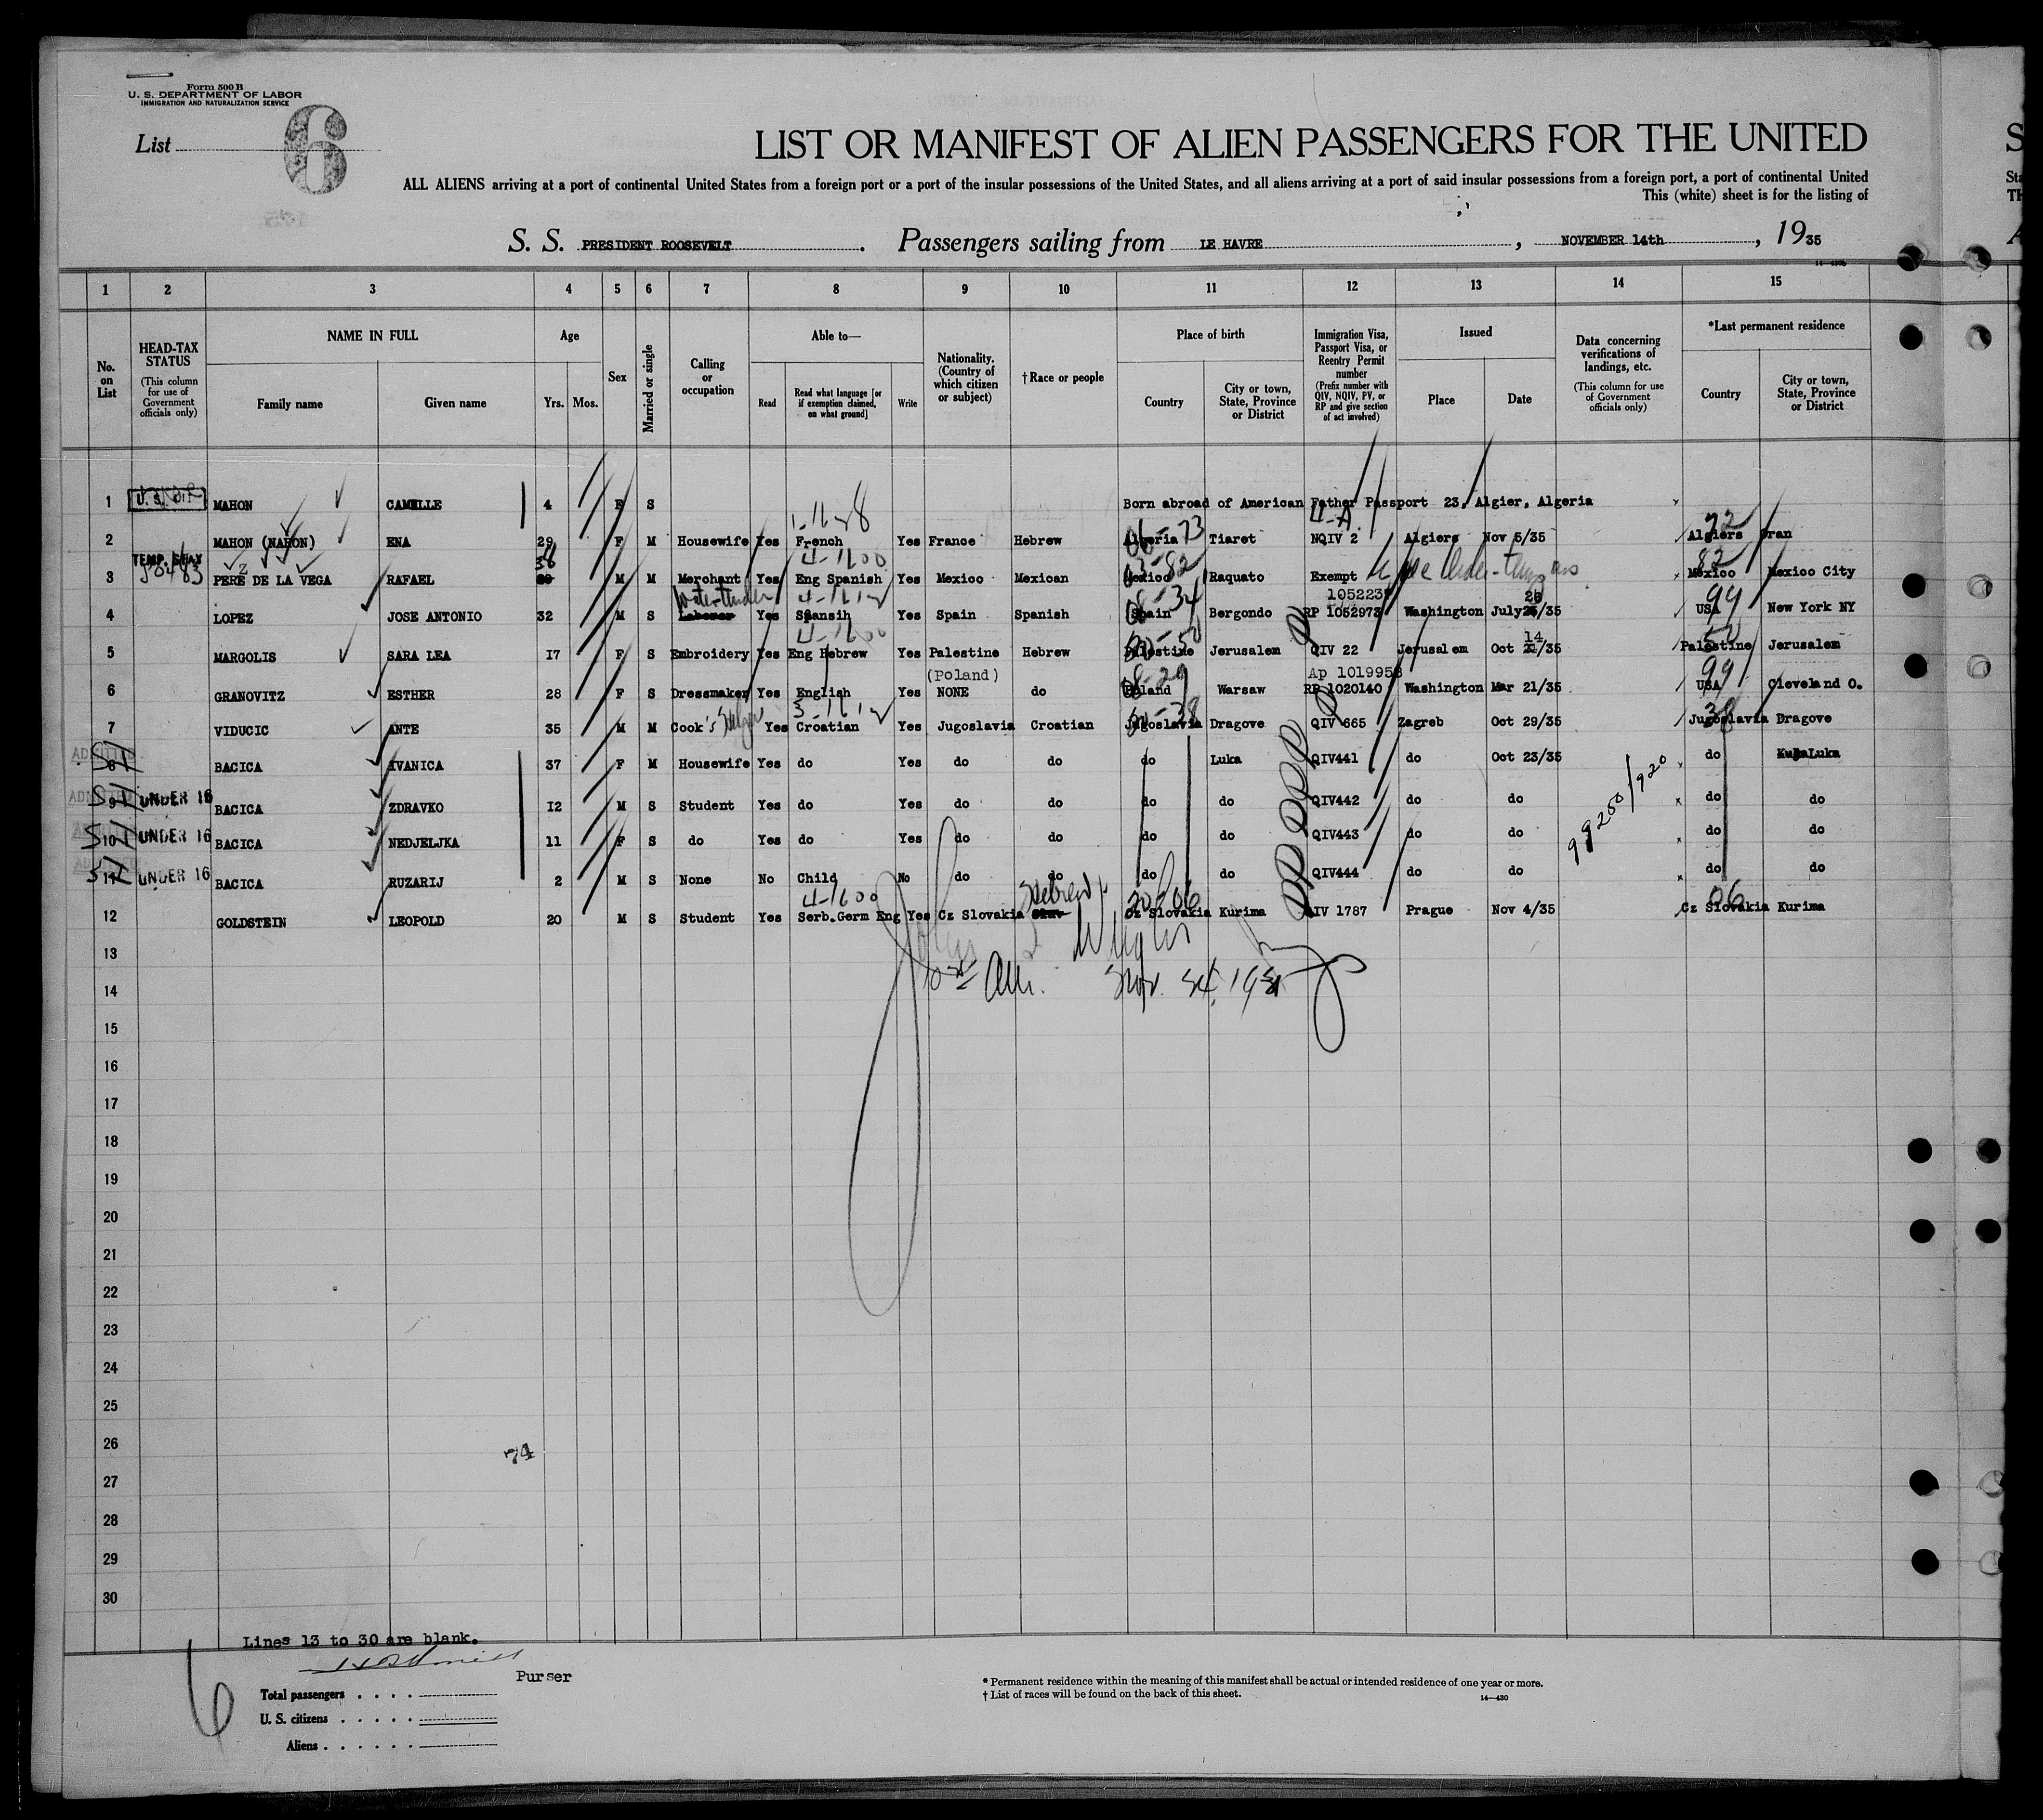 Form 500 B
U. S. DEPARTMENT OF LABOR
IMMIGRATION AND NATURALIZATION SERVICE
List 6
LIST OR MANIFEST OF ALIEN PASSENGERS FOR THE UNITED
ALL ALIENS arriving at a port of continental United States from a foreign port or a port of the insular possessions of the United States, and all aliens arriving at a port of said insular possessions from a foreign port, a port of continental United
This (white) sheet is for the listing of
S. S. PRESIDENT ROOSEVELT. Passengers sailing from LE HAVRE, NOVEMBER 14th, 1935
1 2 3 4 5 6 7 8 9 10 11 12 13 14 15
No. on List
HEAD-TAX STATUS
(This column for use of Government officials only)
NAME IN FULL
Family name Given name
Age
Yrs. Mos.
Sex
Married or single
Calling or occupation
Able to—
Read
Read what language [or if exemption claimed, on what ground]
Write
Nationality. (Country of which citizen or subject)
† Race or people
Place of birth
Country
City or town, State, Province or District
Immigration Visa, Passport Visa, or Reentry Permit number
(Prefix number with QIV, NQIV, PV, or RP and give section of act involved)
Issued
Place Date
Data concerning verifications of landings, etc.
(This column for use of Government officials only)
*Last permanent residence
Country
City or town, State, Province or District
1 MAHON CAMILLE 4 F S Born abroad of American Father Passport 23. Algier, Algeria
4-A
2 MAHON (NAHON) ENA 29 F M Housewife Yes French Yes France Hebrew Algeria Tiaret NQIV 2 Algiers Nov 5/35 Algiers Oran
TEMP. 36 4-1600 03-82 82
3 PERE DE LA VEGA RAFAEL M M Merchant Yes Eng Spanish Yes Mexico Mexican Mexico Raquato Exempt Mexico Mexico City
Watertender 105223 26 99
4 LOPEZ JOSE ANTONIO 32 M S Laborer Yes Spansih Yes Spain Spanish Spain Bergondo RP 1052973 Washington July /35 USA New York NY
4-1600 14 50
5 MARGOLIS SARA LEA 17 F S Embroidery Yes Eng Hebrew Yes Palestine Hebrew Palestine Jerusalem QIV 22 Jerusalem Oct /35 Palestine Jerusalem
(Poland) Ap 1019958 99
6 GRANOVITZ ESTHER 28 F S Dressmaker Yes English Yes NONE do Poland Warsaw RP 1020140 Washington Mar 21/35 USA Cleveland O.
38
7 VIDUCIC ANTE 35 M M Cook's Yes Croatian Yes Jugoslavia Croatian Jugoslavia Dragove QIV 665 Zagreb Oct 29/35 Jugoslavia Dragove
ADMITTED
8 BACICA IVANICA 37 F M Housewife Yes do Yes do do do Luka QIV441 do Oct 23/35 do Luka
99250/920
9 UNDER 16 BACICA ZDRAVKO 12 M S Student Yes do Yes do do do do QIV442 do do do do
10 UNDER 16 BACICA NEDJELJKA 11 F S do Yes do Yes do do do do QIV443 do do do do
11 UNDER 16 BACICA RUZARIJ 2 M S None No Child No do do do do QIV444 do do do do
4-1600 Hebrew 06
12 GOLDSTEIN LEOPOLD 20 M S Student Yes Serb.Germ Eng Yes Cz Slovakia Cz Slovakia Kurima IV 1787 Prague Nov 4/35 Cz Slovakia Kurima
13
14
15
16
17
18
19
20
21
22
23
24
25
26
74
27
28
29
30
Lines 13 to 30 are blank.
Purser
6
Total passengers
U. S. citizens
Aliens
* Permanent residence within the meaning of this manifest shall be actual or intended residence of one year or more.
† List of races will be found on the back of this sheet.
14—430